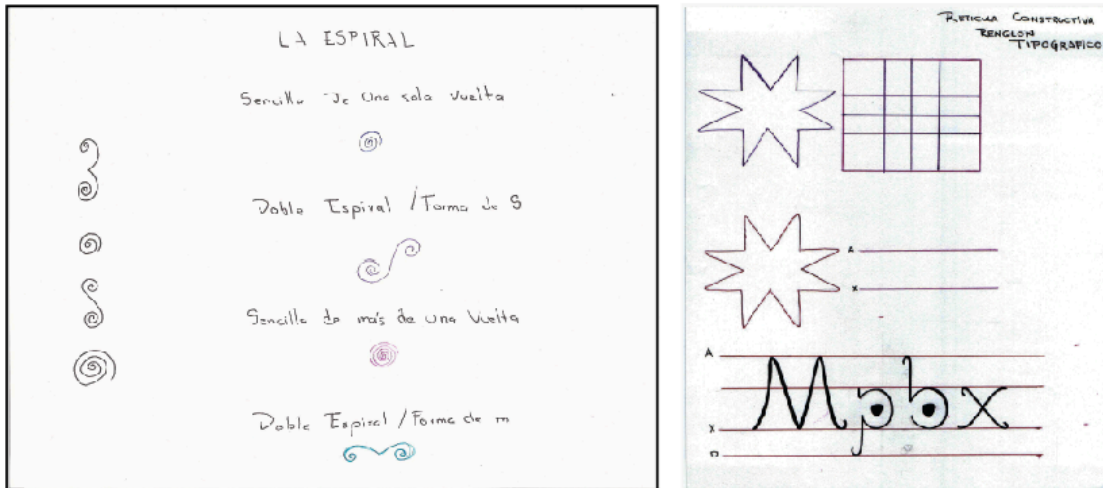 LA ESPIRAL
Sencilla de una sola vuelta
Doble Espiral / Forma de S
Sencilla de más de una Vuelta
Doble Espiral / Forma de m
RETICULA CONSTRUCTIVA
RENGLON
TIPOGRAFICO
A
X
A
Mpbx
X